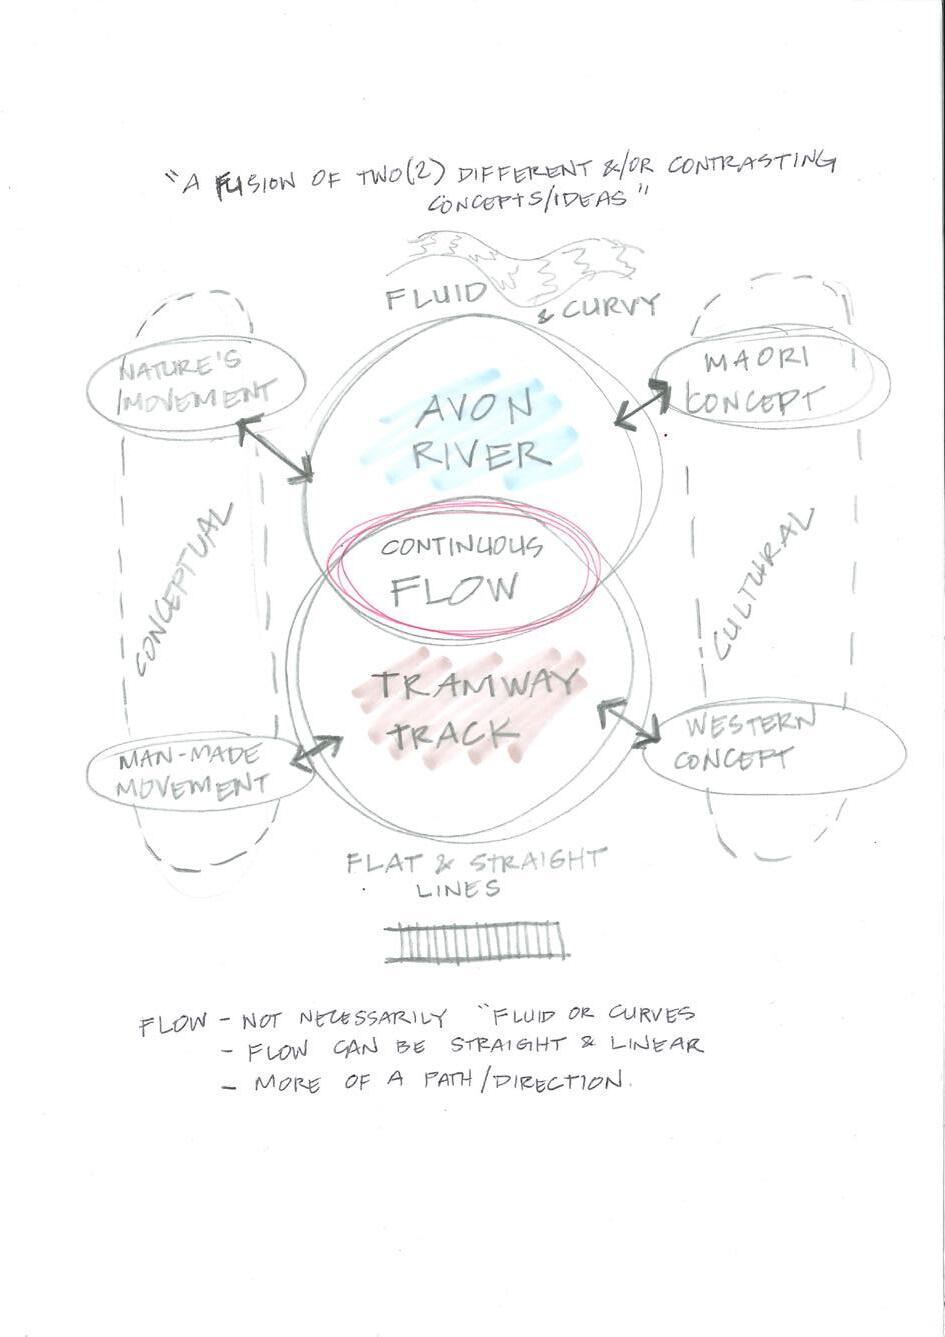 "A FUSION OF TWO(2) DIFFERENT &/OR CONTRASTING
CONCEPTS/IDEAS"
FLUID
& CURVY
NATURE'S
MOVEMENT
MAORI
CONCEPT
AVON
RIVER
CONCEPTUAL
CULTURAL
CONTINUOUS
FLOW
TRAMWAY
TRACK
MAN-MADE
MOVEMENT
WESTERN
CONCEPT
FLAT & STRAIGHT
LINES
FLOW - NOT NECESSARILY "FLUID OR CURVES
- FLOW CAN BE STRAIGHT & LINEAR
- MORE OF A PATH/DIRECTION.